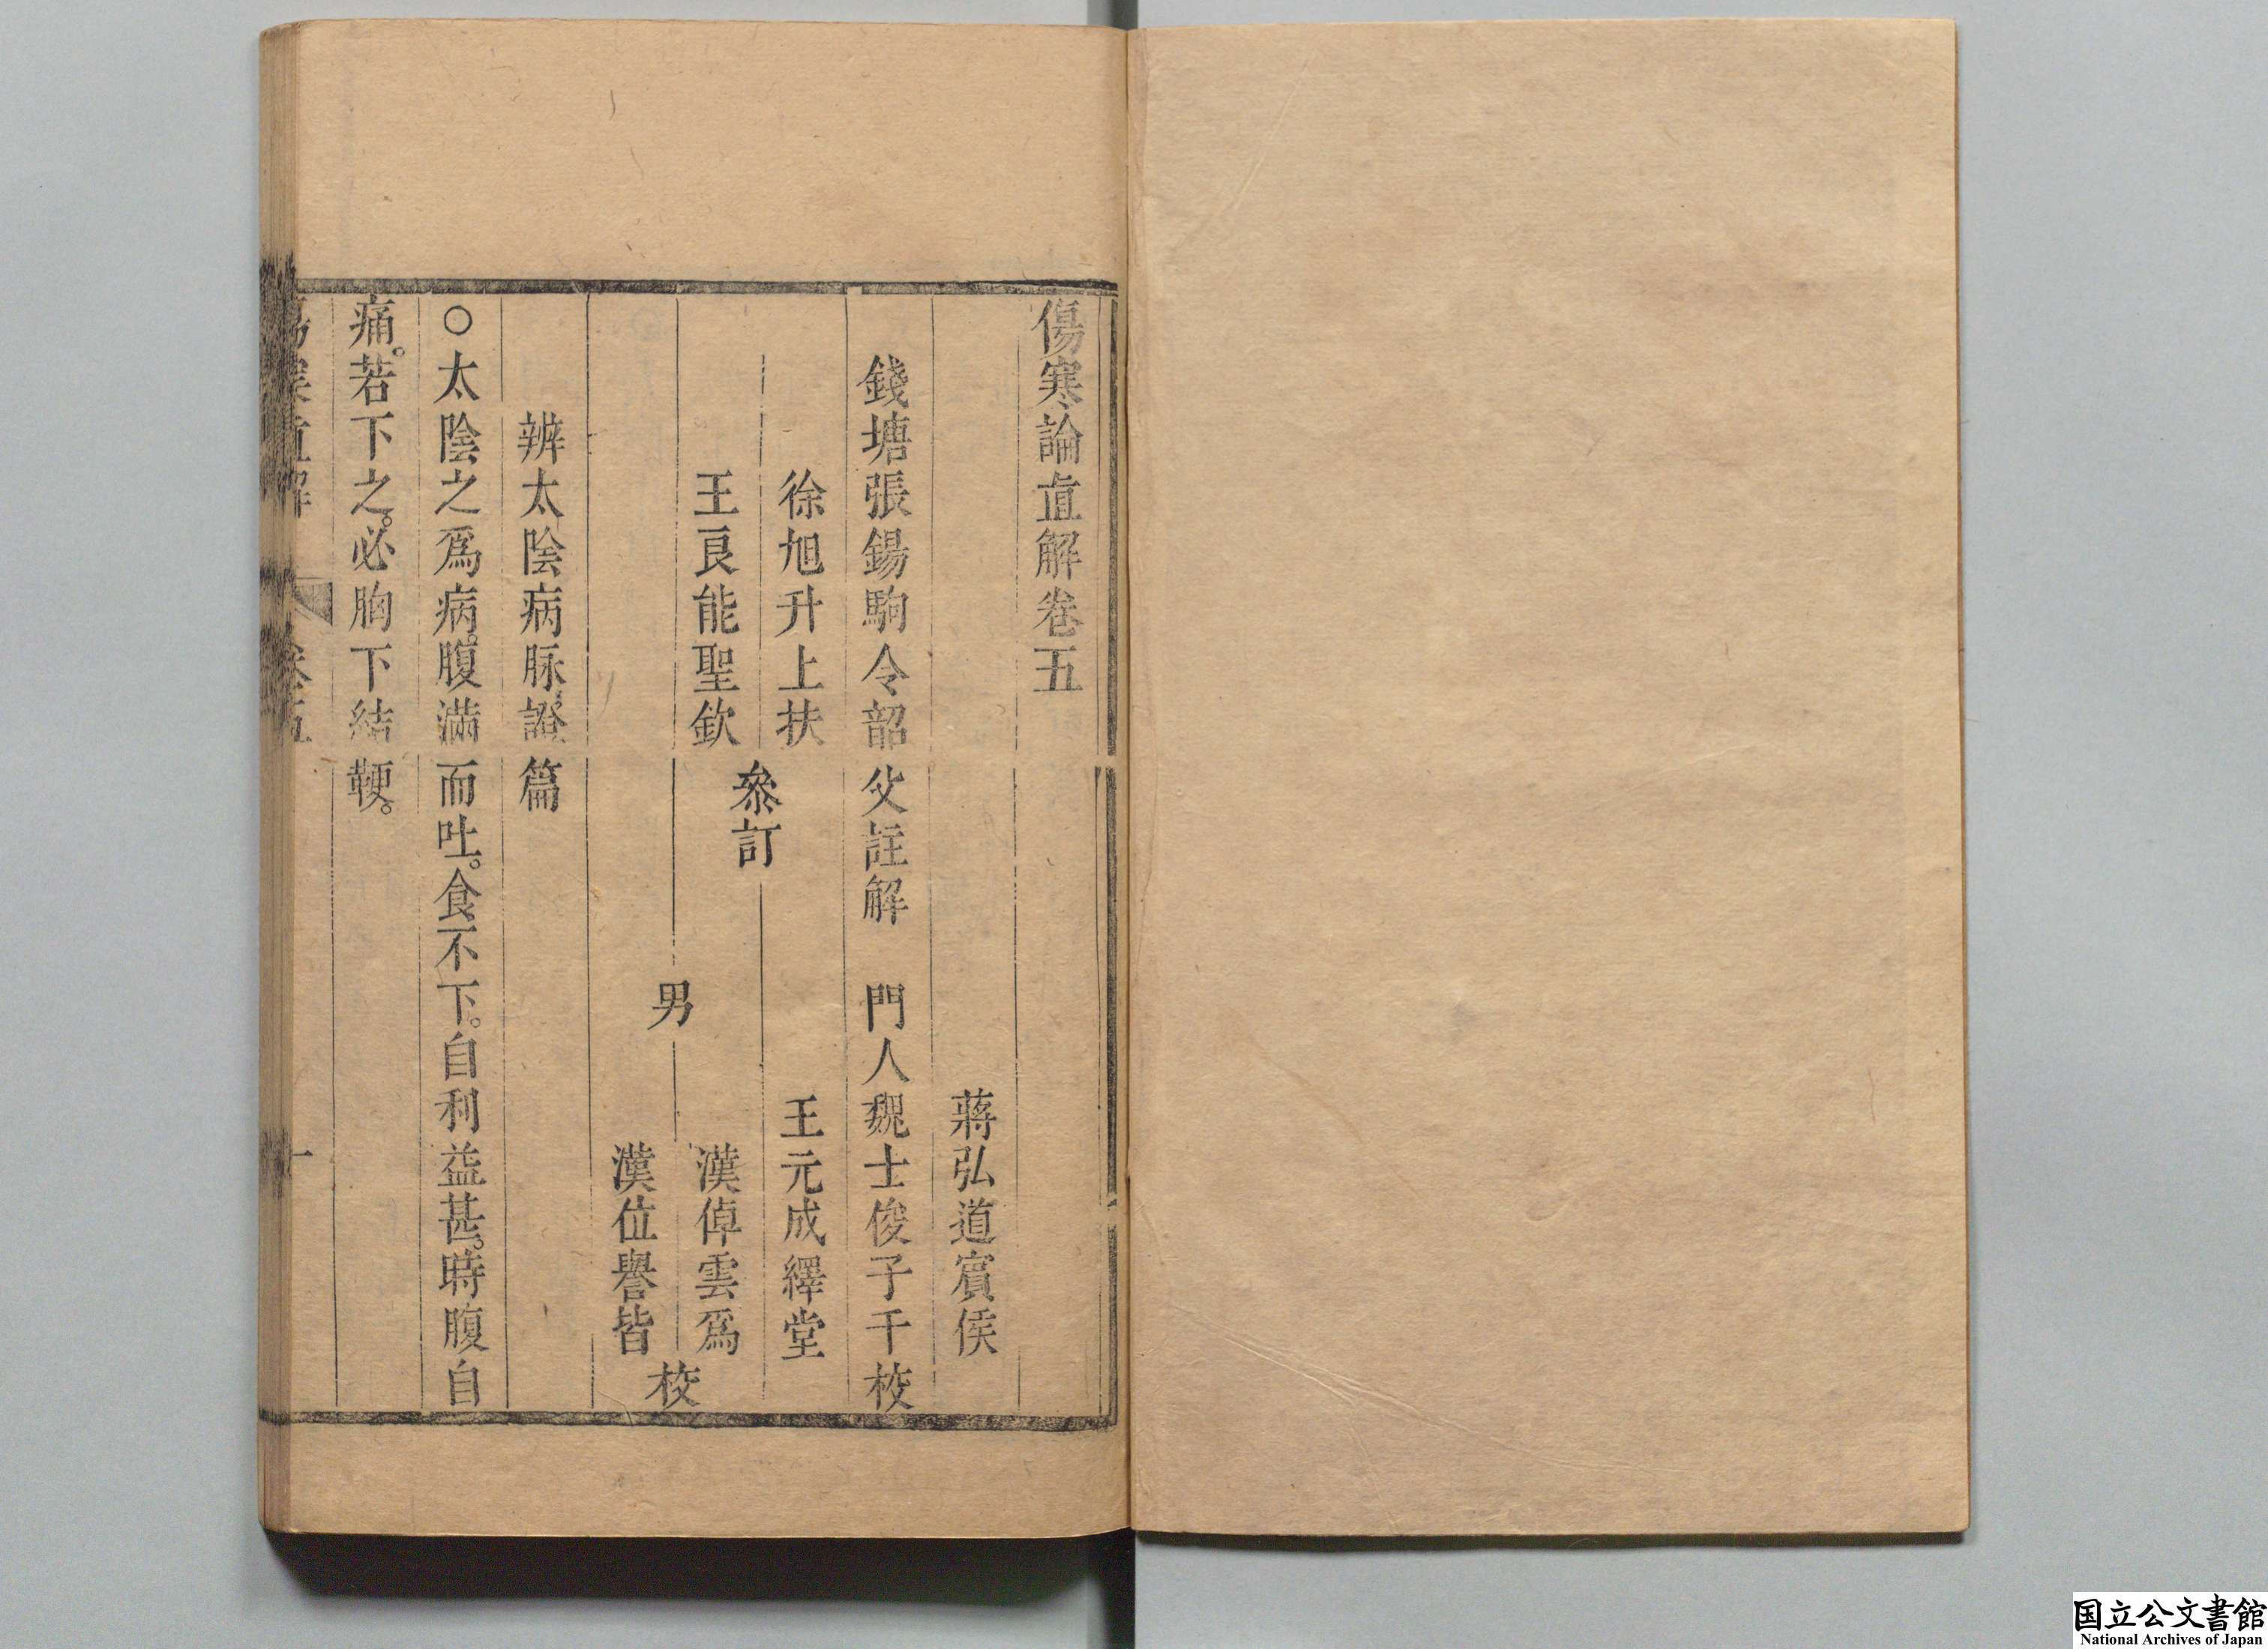 傷寒論直解卷五
蔣弘道賓侯
錢塘張錫駒令韶父註解　門人魏士俊子千校
徐旭升上扶　王元成繹堂
參訂
王良能聖欽　漢倬雲爲
男　校
漢位譽皆
辨太陰病脉證篇
○太陰之爲病。腹滿而吐。食不下。自利益甚。時腹自
痛。若下之。必胸下結鞕。
傷寒直解　卷五　一
国立公文書館
National Archives of Japan